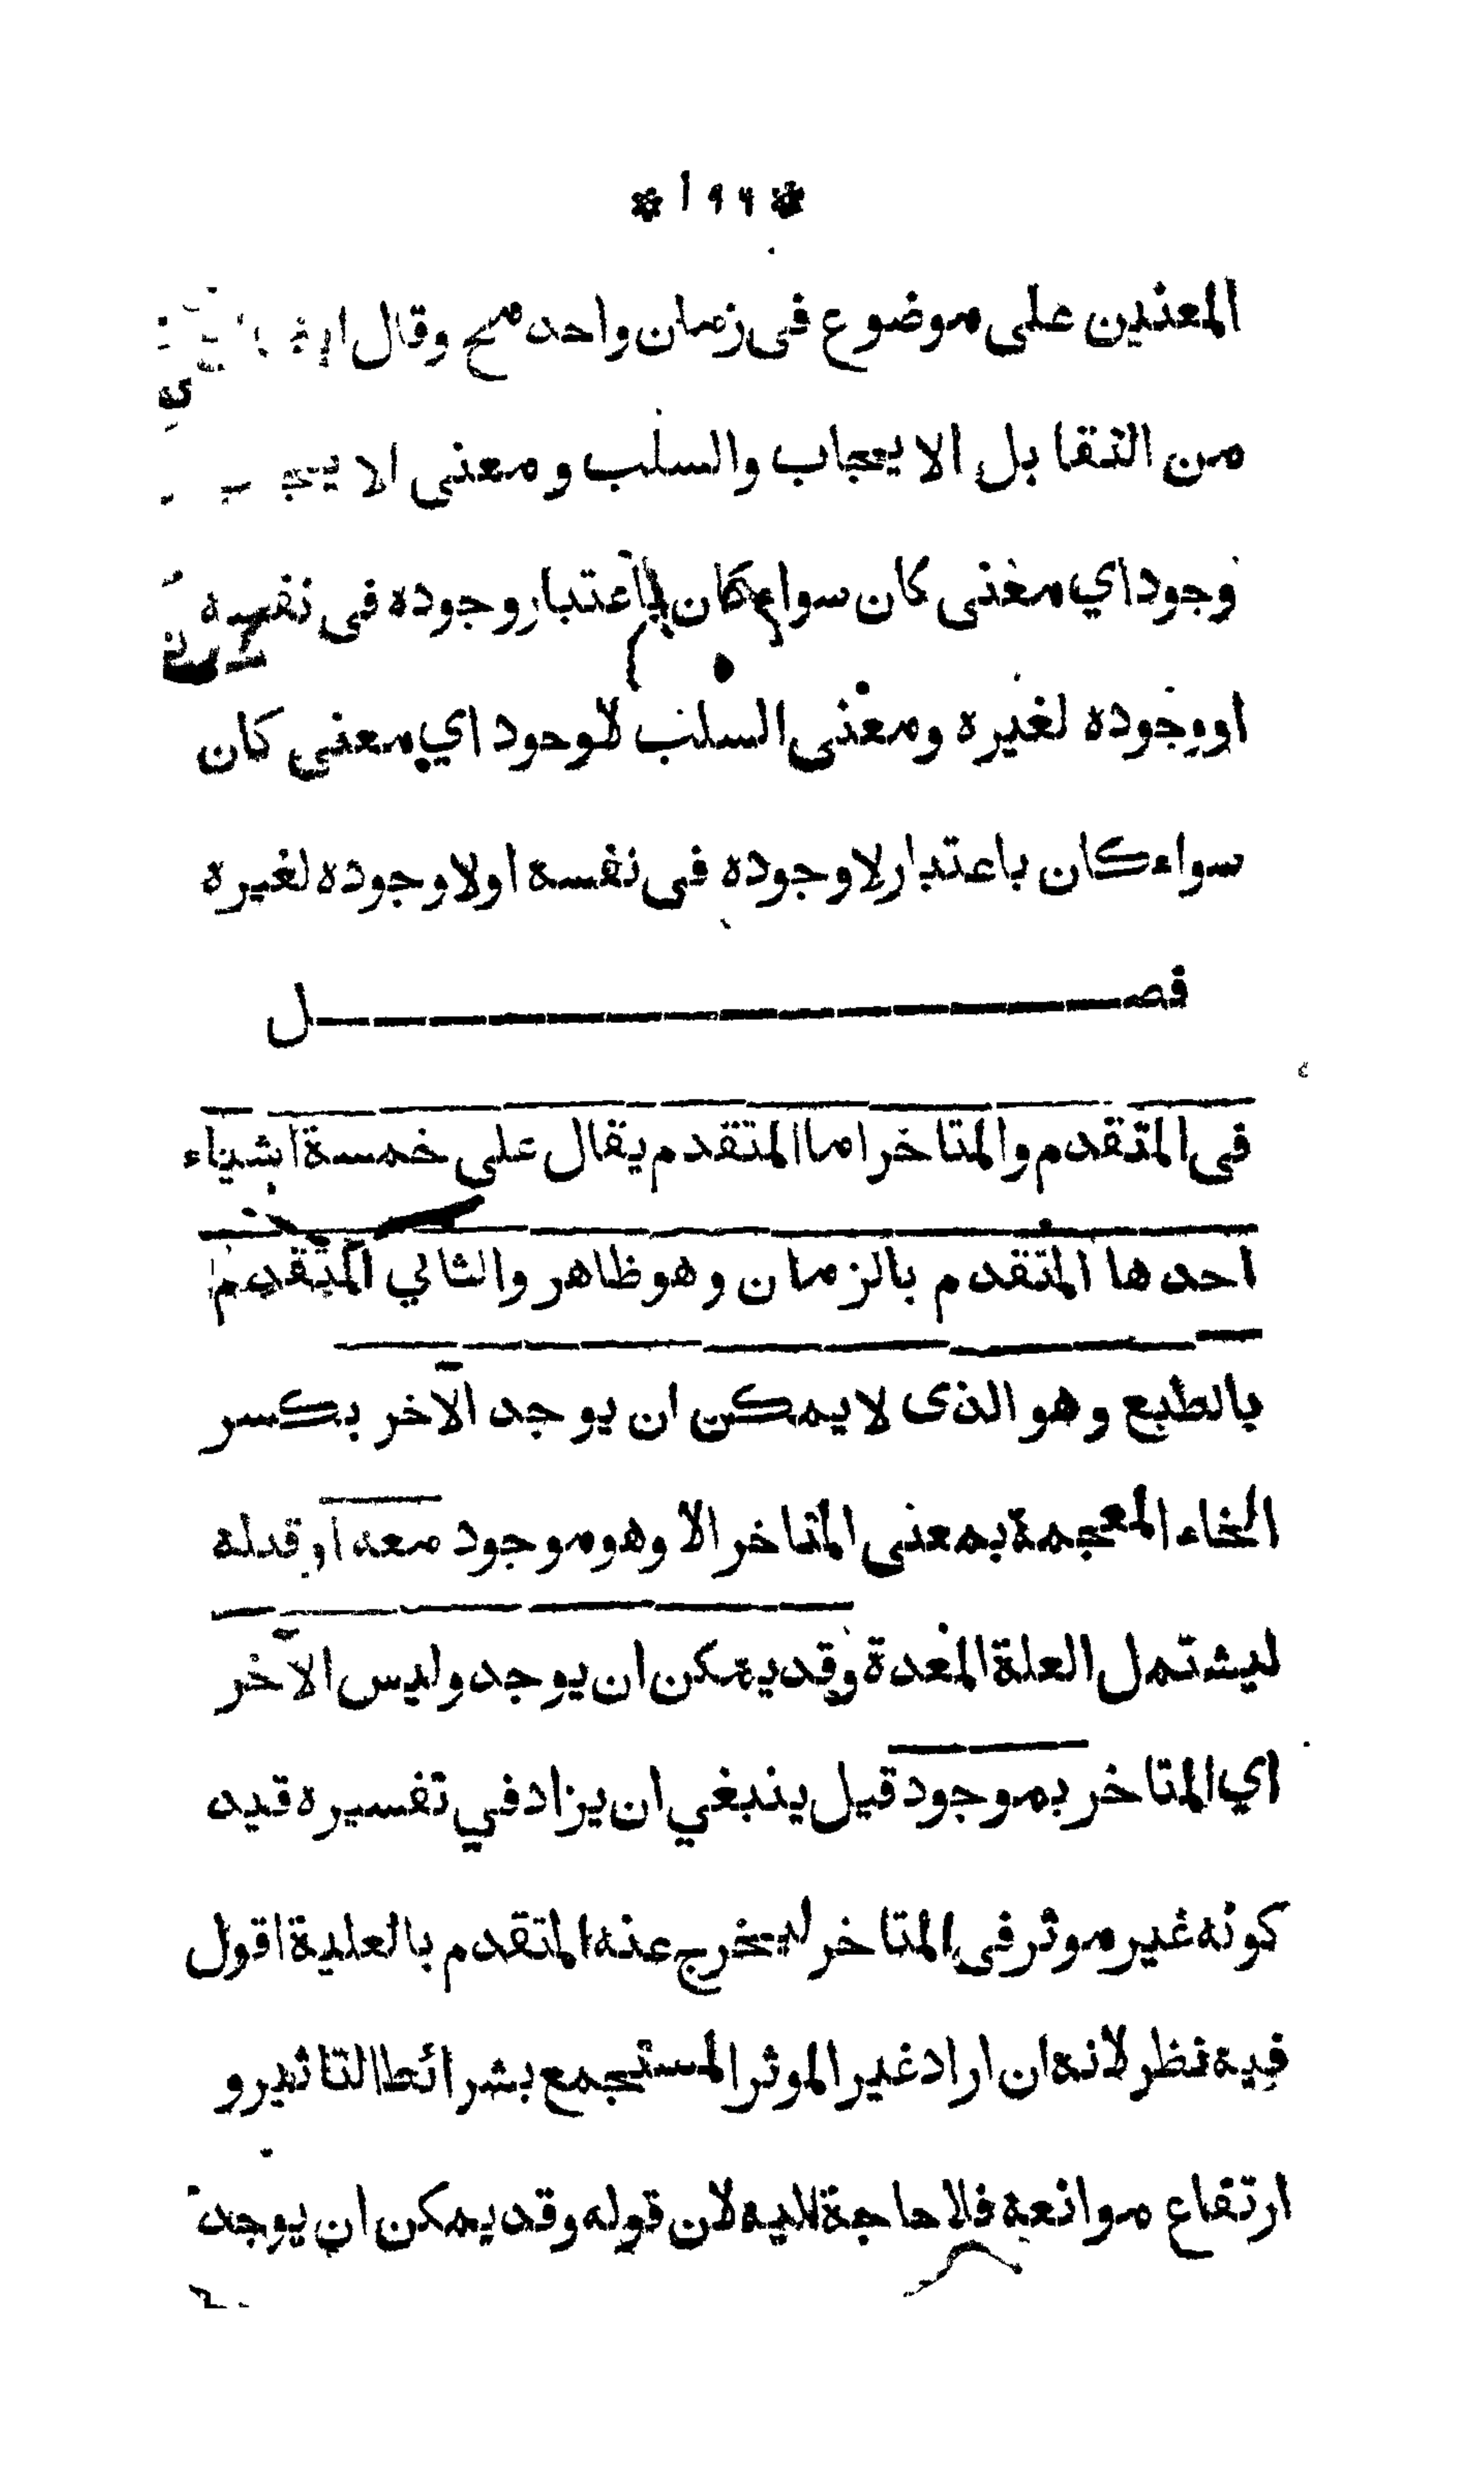 * ١٩٦ *
المعنيين على موضوع فى زمان واحد مح وقال
من التقابل الايجاب والسلب ومعنى
وجود اي معنى كان سواء كان باعتبار وجوده فى نفسه
او وجوده لغيره ومعنى السلب لا وجود اي معنى كان
سواء كان باعتبار لا وجوده فى نفسه اولا وجوده لغيره
فصل
فى المتقدم والمتاخر اما المتقدم يقال على خمسة اشياء
احدها المتقدم بالزمان وهو ظاهر والثاني المتقدم
بالطبع وهو الذى لا يمكن ان يوجد الآخر بكسر
الخاء المعجمة بمعنى المتاخر الا وهو موجود معه او قبله
ليشتمل العلة المعدة وقد يمكن ان يوجد وليس الآخر
اي المتاخر بموجود قيل ينبغي ان يزاد في تفسيره قيد
كونه غير موثر فى المتاخر ليخرج عنه المتقدم بالعلية اقول
فيه نظر لانه ان اراد غير الموثر المستجمع بشرائط التاثير و
ارتفاع موانعه فلا حاجة اليه لان قوله وقد يمكن ان يوجد